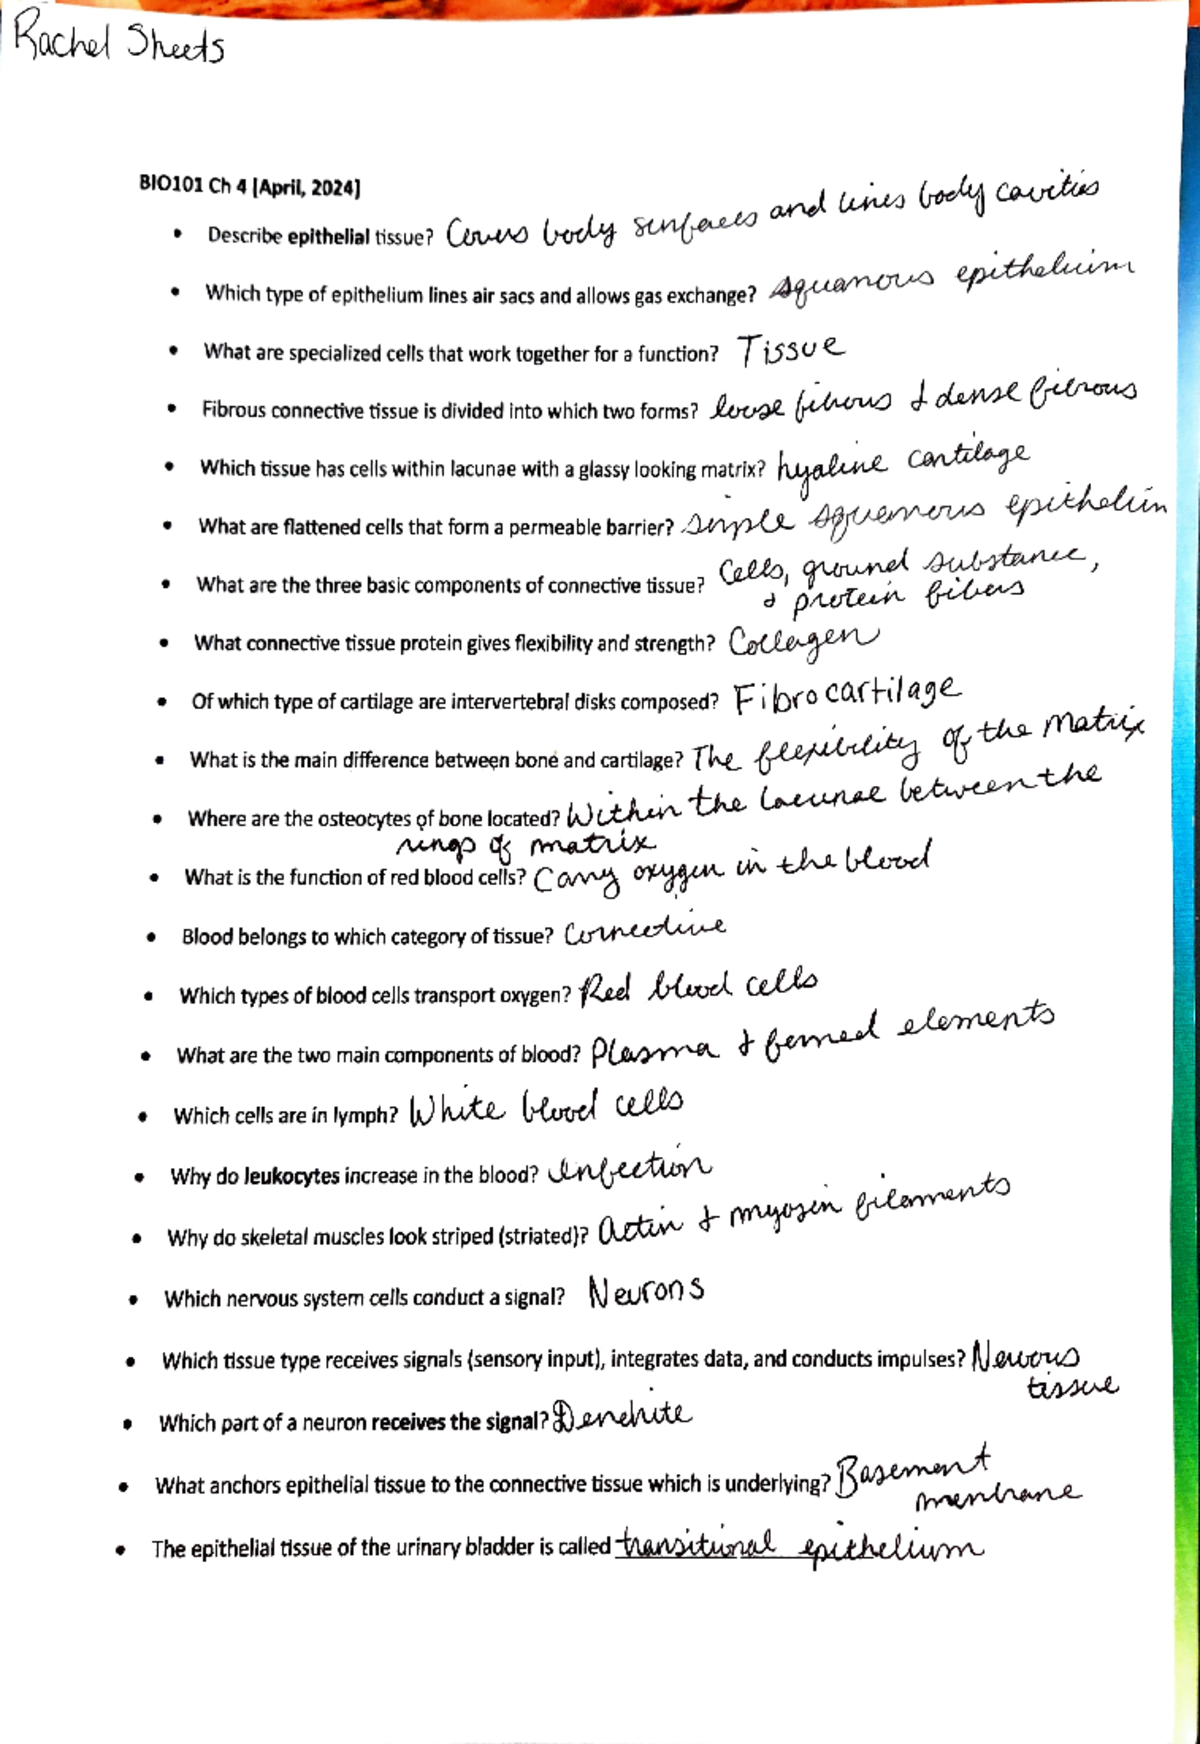 Rachel Sheets
BIO101 Ch 4 [April, 2024]
• Describe epithelial tissue? Covers body surfaces and lines body cavities
• Which type of epithelium lines air sacs and allows gas exchange? squamous epithelium
• What are specialized cells that work together for a function? Tissue
• Fibrous connective tissue is divided into which two forms? loose fibrous & dense fibrous
• Which tissue has cells within lacunae with a glassy looking matrix? hyaline cartilage
• What are flattened cells that form a permeable barrier? simple squamous epithelium
• What are the three basic components of connective tissue? Cells, ground substance,
& protein fibers
• What connective tissue protein gives flexibility and strength? Collagen
• Of which type of cartilage are intervertebral disks composed? Fibrocartilage
• What is the main difference between bone and cartilage? The flexibility of the Matrix
• Where are the osteocytes of bone located? Within the lacunae between the
rings of matrix
• What is the function of red blood cells? Carry oxygen in the blood
• Blood belongs to which category of tissue? Connective
• Which types of blood cells transport oxygen? Red blood cells
• What are the two main components of blood? Plasma & formed elements
• Which cells are in lymph? White blood cells
• Why do leukocytes increase in the blood? Infection
• Why do skeletal muscles look striped (striated)? Actin & myosin filaments
• Which nervous system cells conduct a signal? Neurons
• Which tissue type receives signals (sensory input), integrates data, and conducts impulses? Nervous
tissue
• Which part of a neuron receives the signal? Dendrite
• What anchors epithelial tissue to the connective tissue which is underlying? Basement
membrane
• The epithelial tissue of the urinary bladder is called transitional epithelium